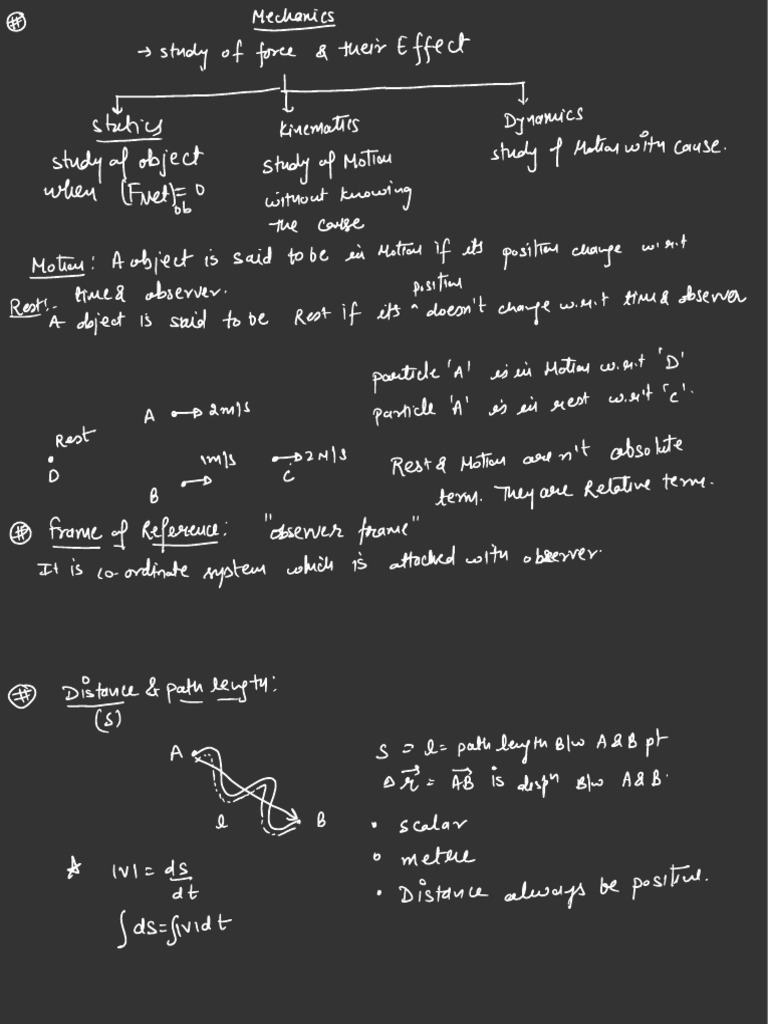 Mechanics
→ study of force & their Effect
Statics
study of object
when (Fnet)ob = 0
Kinematics
Study of Motion
without knowing
the cause
Dynamics
study of Motion with cause.
Motion: A object is said to be in Motion if its position change w.r.t
time & observer.
Rest:- A object is said to be Rest if its position doesn't change w.r.t time & observer
A 2m/s
Rest
D
1m/s
B
2m/s
C
particle 'A' is in Motion w.r.t 'D'
particle 'A' is in rest w.r.t 'C'.
Rest & Motion aren't absolute
term. They are Relative term.
# frame of Reference: "observer frame"
It is co-ordinate system which is attached with observer.
# Distance & path length:
(s)
A
l
B
s = l = path length B/w A & B pt
Δr⃗ = AB⃗ is dispn B/w A & B.
• scalar
• metre
• Distance always be positive.
|v| = ds/dt
∫ds = ∫|v|dt